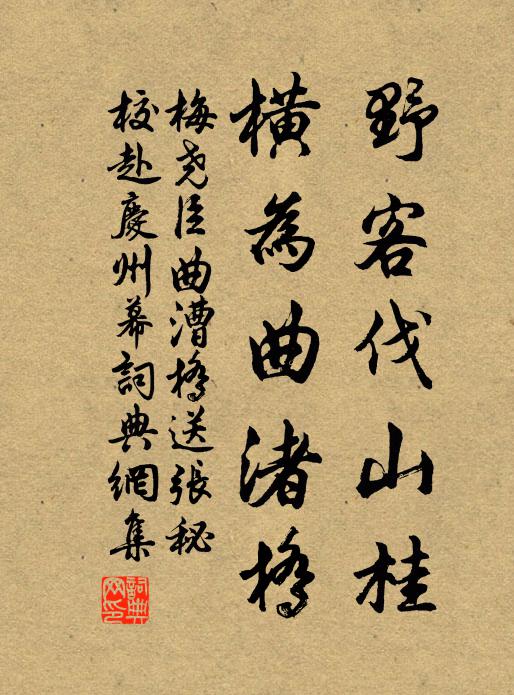 野客伐山桂
橫為曲渚橋
梅堯臣曲漕橋送張秘
校赴慶州幕詞典網集
詞典
网印